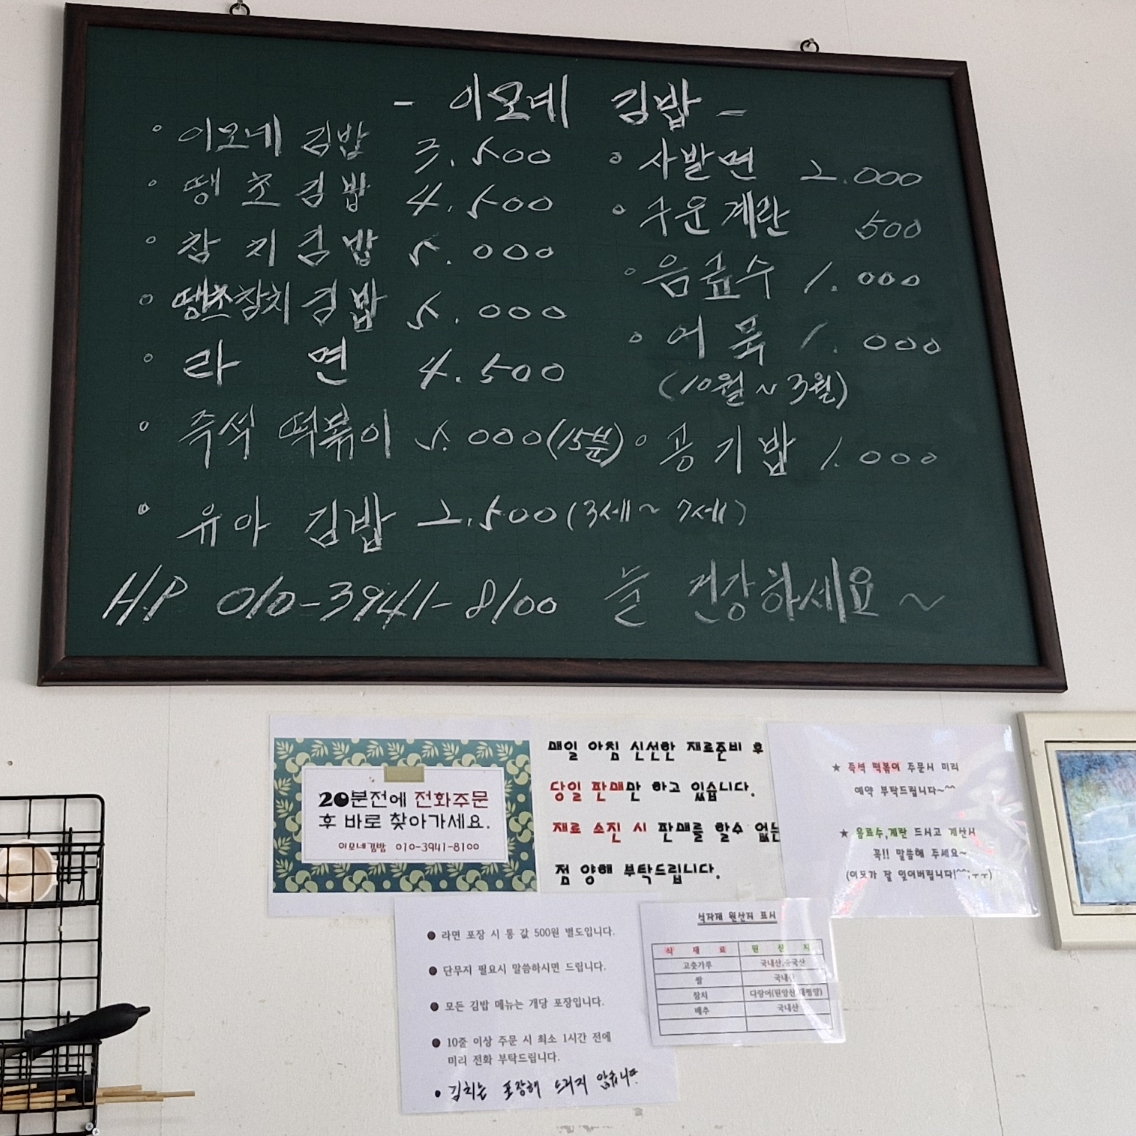 - 이모네 김밥 -
◦ 이모네 김밥 3.500
◦ 땡초김밥 4.500
◦ 참치김밥 5.000
◦ 땡초참치김밥 5.000
◦ 라 면 4.500
◦ 즉석 떡볶이 5.000(15분)
◦ 유아 김밥 2.500(3세~7세)
◦ 사발면 2.000
◦ 구운계란 500
◦ 음료수 1.000
◦ 어묵 1.000
(10월~3월)
◦ 공기밥 1.000
H.P 010-3941-8100 늘 건강하세요~
20분전에 전화주문
후 바로 찾아가세요.
이모네김밥 010-3941-8100
매일 아침 신선한 재료준비 후
당일 판매만 하고 있습니다.
재료 소진 시 판매를 할수 없는
점 양해 부탁드립니다.
★ 즉석 떡볶이 주문시 미리
예약 부탁드립니다~^^
★ 음료수,계란 드시고 계산시
꼭!! 말씀해 주세요~
(이모가 잘 잊어버립니다!^^;ㅜㅜ)
● 라면 포장 시 통 값 500원 별도입니다.
● 단무지 필요시 말씀하시면 드립니다.
● 모든 김밥 메뉴는 개당 포장입니다.
● 10줄 이상 주문 시 최소 1시간 전에
미리 전화 부탁드립니다.
• 김치는 포장해 드리지 않습니다.
식자재 원산지 표시
식 재 료 원 산 지
고춧가루 국내산,중국산
쌀 국내산
참치 다랑어(원양산,태평양)
배추 국내산